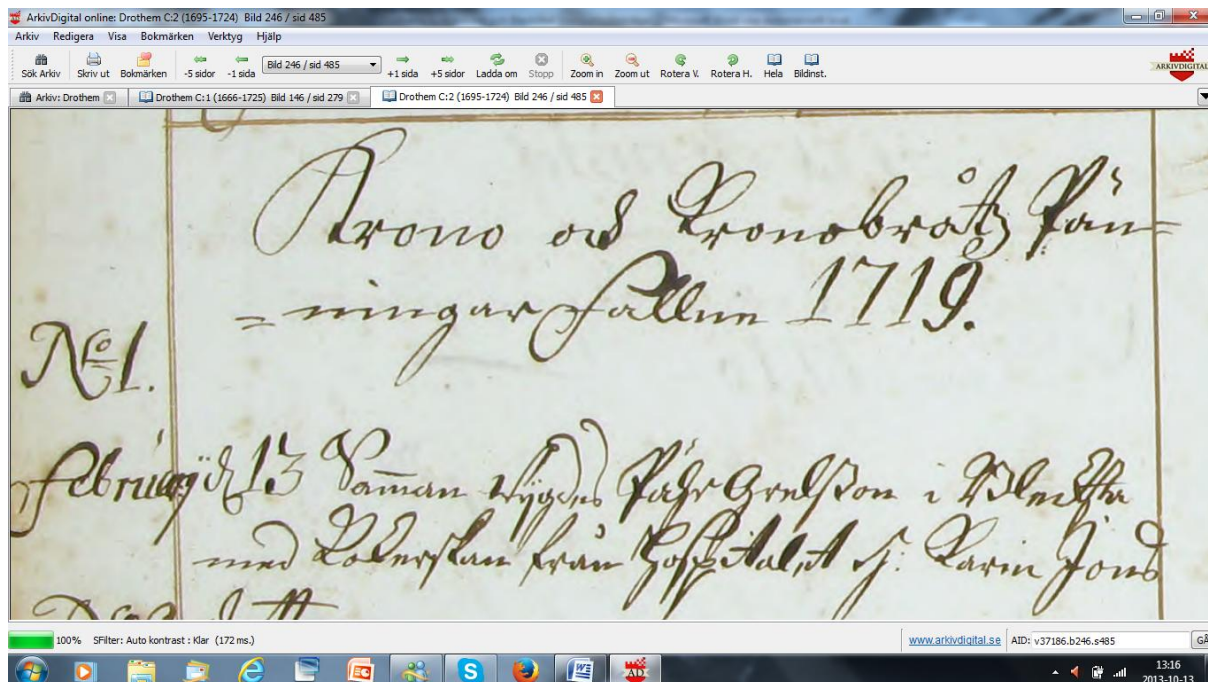 ArkivDigital online: Drothem C:2 (1695-1724) Bild 246 / sid 485
Arkiv Redigera Visa Bokmärken Verktyg Hjälp
Sök Arkiv Skriv ut Bokmärken -5 sidor -1 sida Bild 246 / sid 485 +1 sida +5 sidor Ladda om Stopp Zoom in Zoom ut Rotera V. Rotera H. Hela Bildinst. ARKIVDIGITAL
Arkiv: Drothem Drothem C:1 (1666-1725) Bild 146 / sid 279 Drothem C:2 (1695-1724) Bild 246 / sid 485
Krono och Kronobråtz Pän=
=ningar fallne 1719.
No 1.
Februarij d. 13 Samman wigdes Påhr Grelsson i
med Kokerskan från Hospitalet h: Karin Jons
100% SFilter: Auto kontrast : Klar (172 ms.) www.arkivdigital.se AID: v37186.b246.s485 GÅ
13:16
2013-10-13